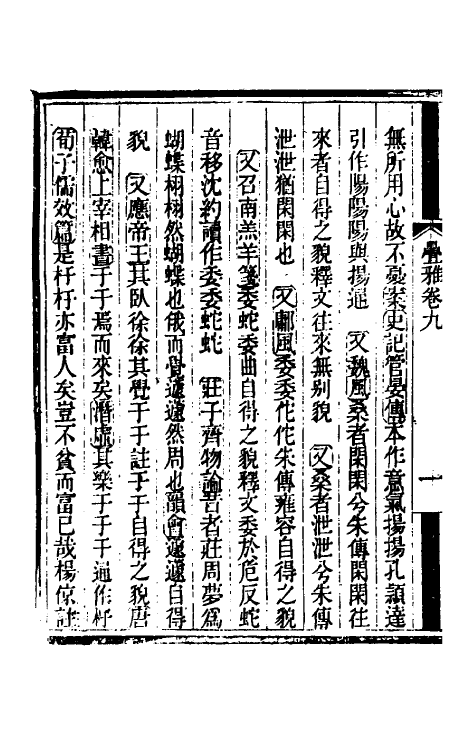 疊雅卷九
一
無所用心故不憂案史記管晏傳本作意氣揚揚孔穎達
引作陽陽陽與揚通　又魏風桑者閑閑兮朱傳閑閑往
來者自得之貌釋文往來無别貌　又桑者泄泄兮朱傳
泄泄猶閑閑也　又鄘風委委佗佗朱傳雍容自得之貌
又召南羔羊箋委蛇委曲自得之貌釋文委於危反蛇
音移沈約讀作委委蛇蛇　莊子齊物論昔者莊周夢爲
蝴蝶栩栩然蝴蝶也俄而覺蘧蘧然周也韻會蘧蘧自得
貌　又應帝王其臥徐徐其覺于于註于于自得之貌唐
韓愈上宰相書于于焉而來矣潛虛其樂于于于通作杅
荀子儒效篇是杅杅亦富人矣豈不貧而富已哉楊倞註